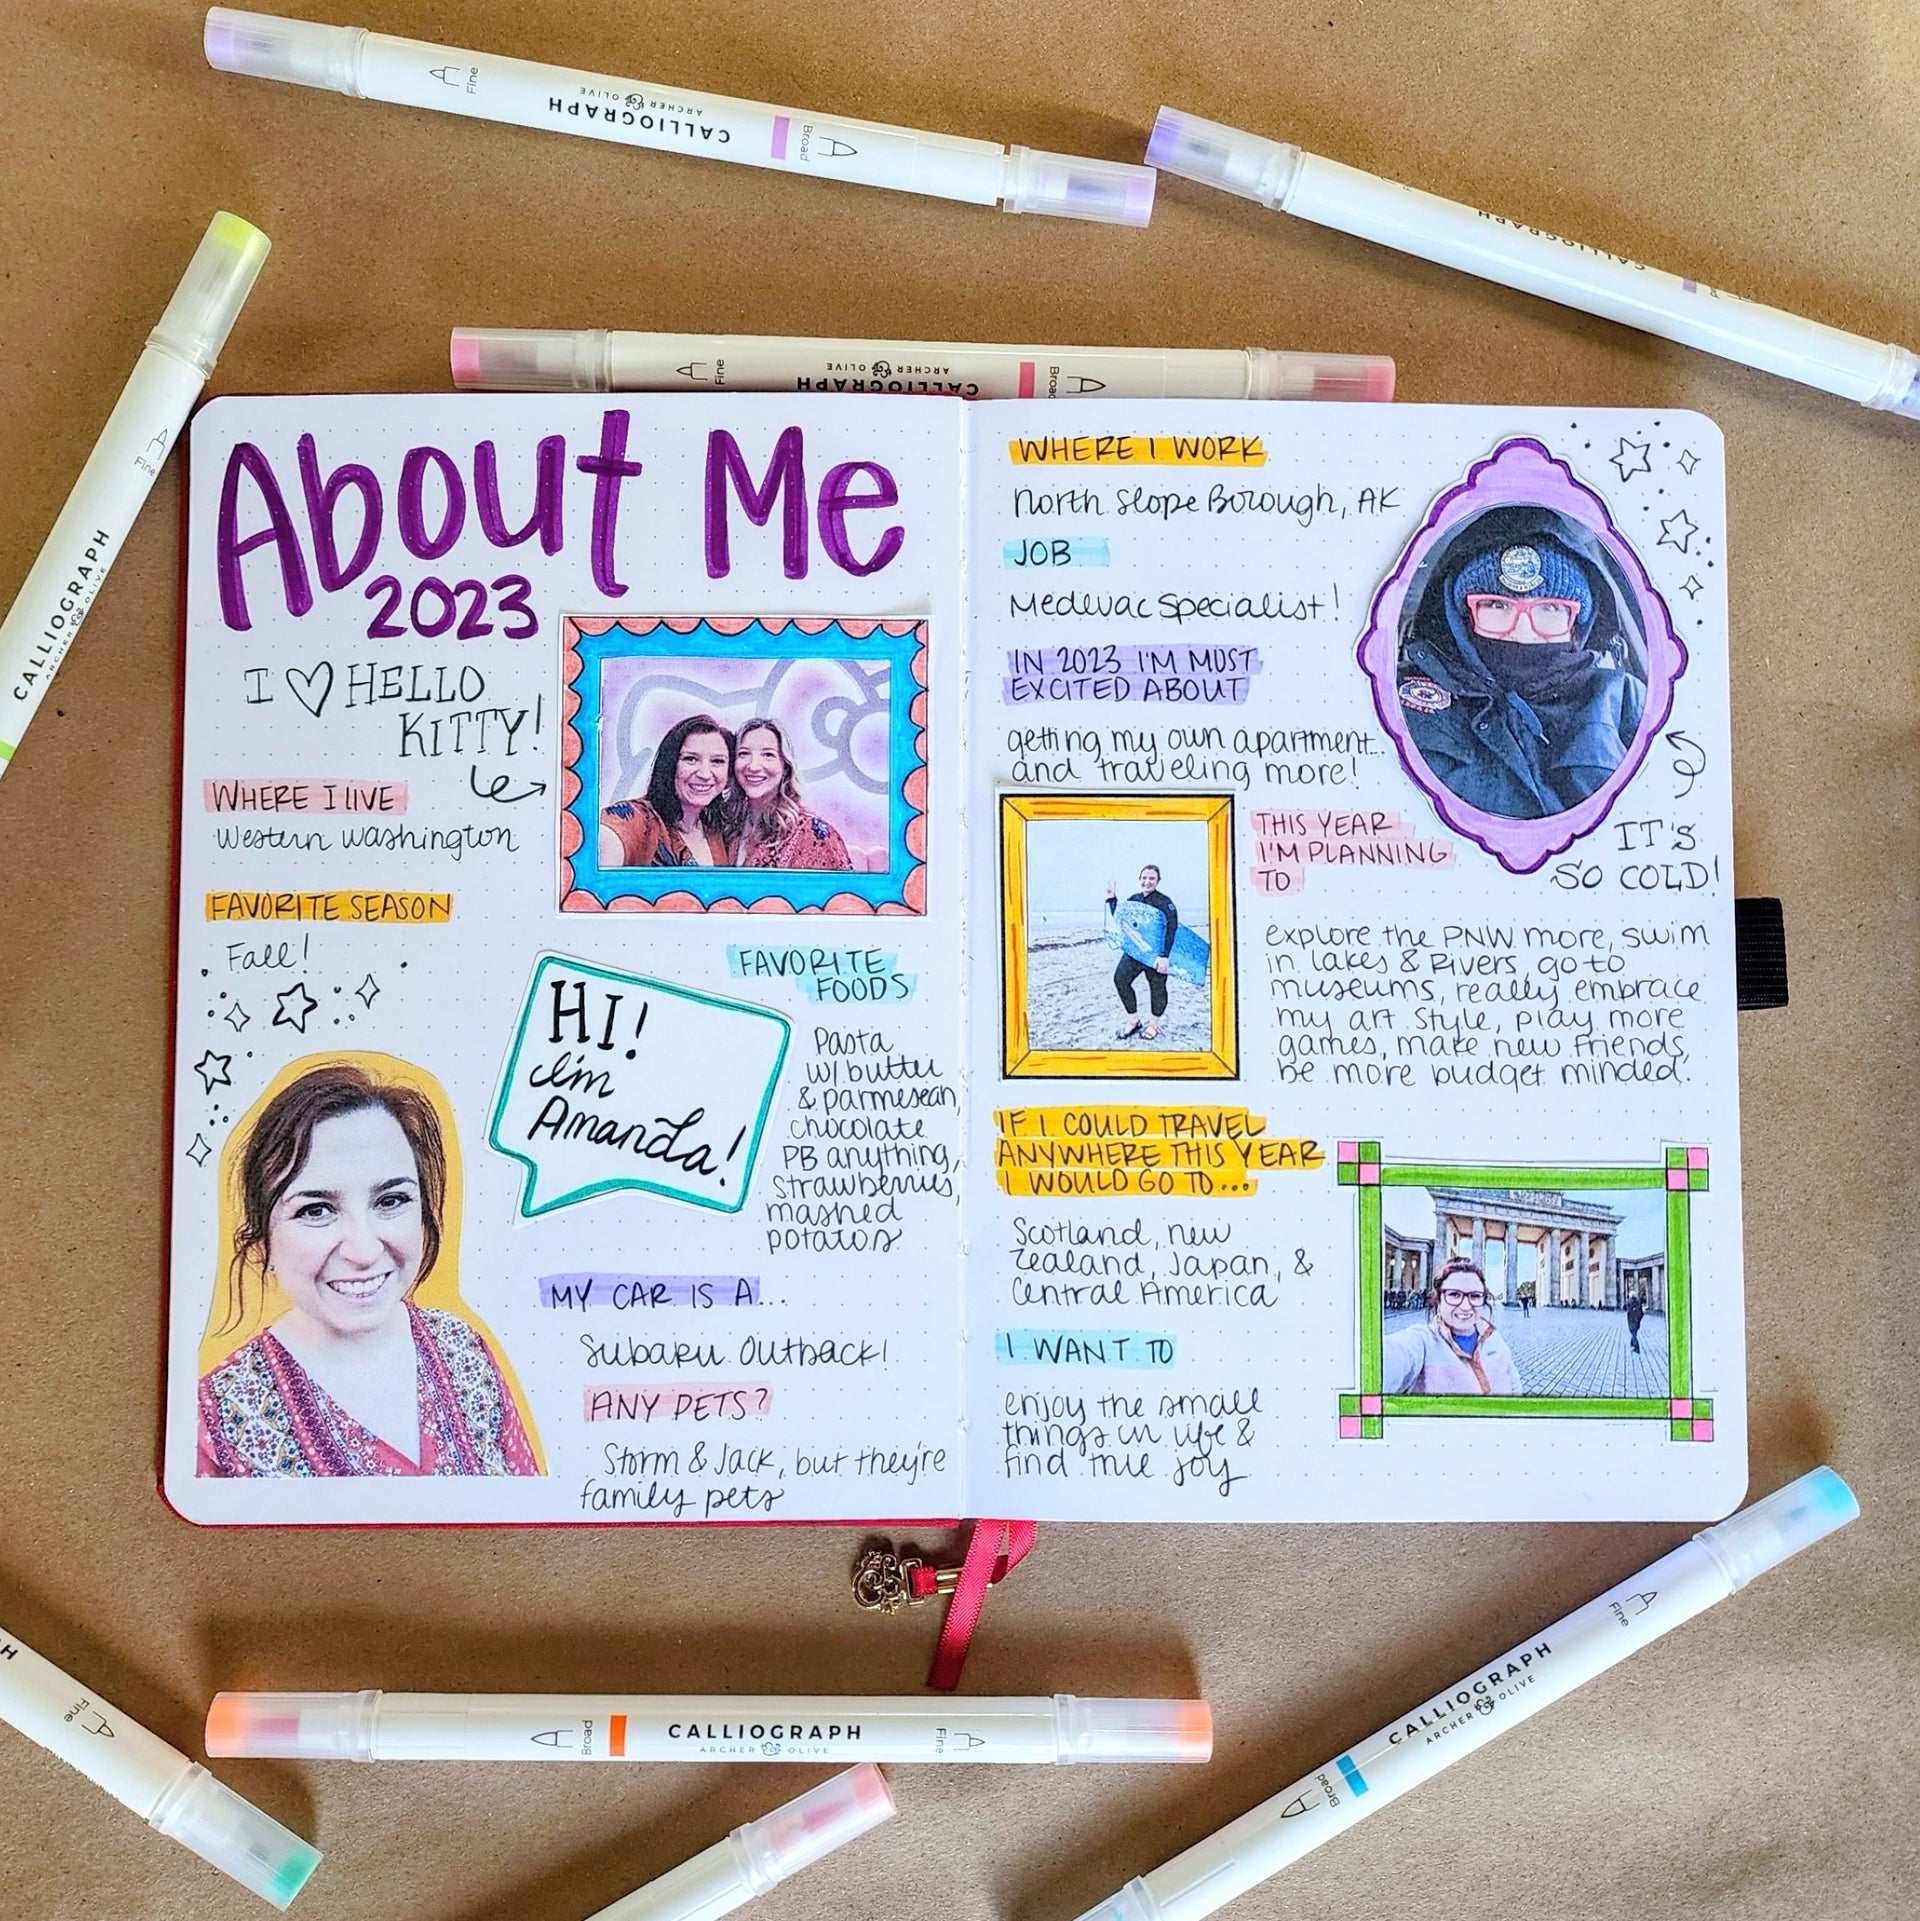 Fine
CALLIOGRAPH
ARCHER & OLIVE
Broad
CALLIOGRAPH
Fine
CALLIOGRAPH
ARCHER & OLIVE
Fine
CALLIOGRAPH
ARCHER & OLIVE
Broad
About Me
2023
I ♡ HELLO
KITTY!
WHERE I LIVE
Western Washington
FAVORITE SEASON
Fall!
HI!
I'm
Amanda!
FAVORITE
FOODS
Pasta
w/ butter
& parmesean,
chocolate
PB anything,
Strawberries,
mashed
potatos
MY CAR IS A...
Subaru Outback!
ANY PETS?
Storm & Jack, but they're
family pets
WHERE I WORK
North Slope Borough, AK
JOB
Medevac Specialist!
IN 2023 I'M MOST
EXCITED ABOUT
getting my own apartment...
and traveling more!
IT'S
SO COLD!
THIS YEAR
I'M PLANNING
TO
explore the PNW more, swim
in lakes & Rivers, go to
museums, really embrace
my art style, play more
games, make new friends,
be more budget minded.
IF I COULD TRAVEL
ANYWHERE THIS YEAR
I WOULD GO TO...
Scotland, new
Zealand, Japan, &
Central America
I WANT TO
enjoy the small
things in life &
find true joy
Fine
Broad
CALLIOGRAPH
ARCHER & OLIVE
Fine
Fine
CALLIOGRAPH
ARCHER & OLIVE
Broad